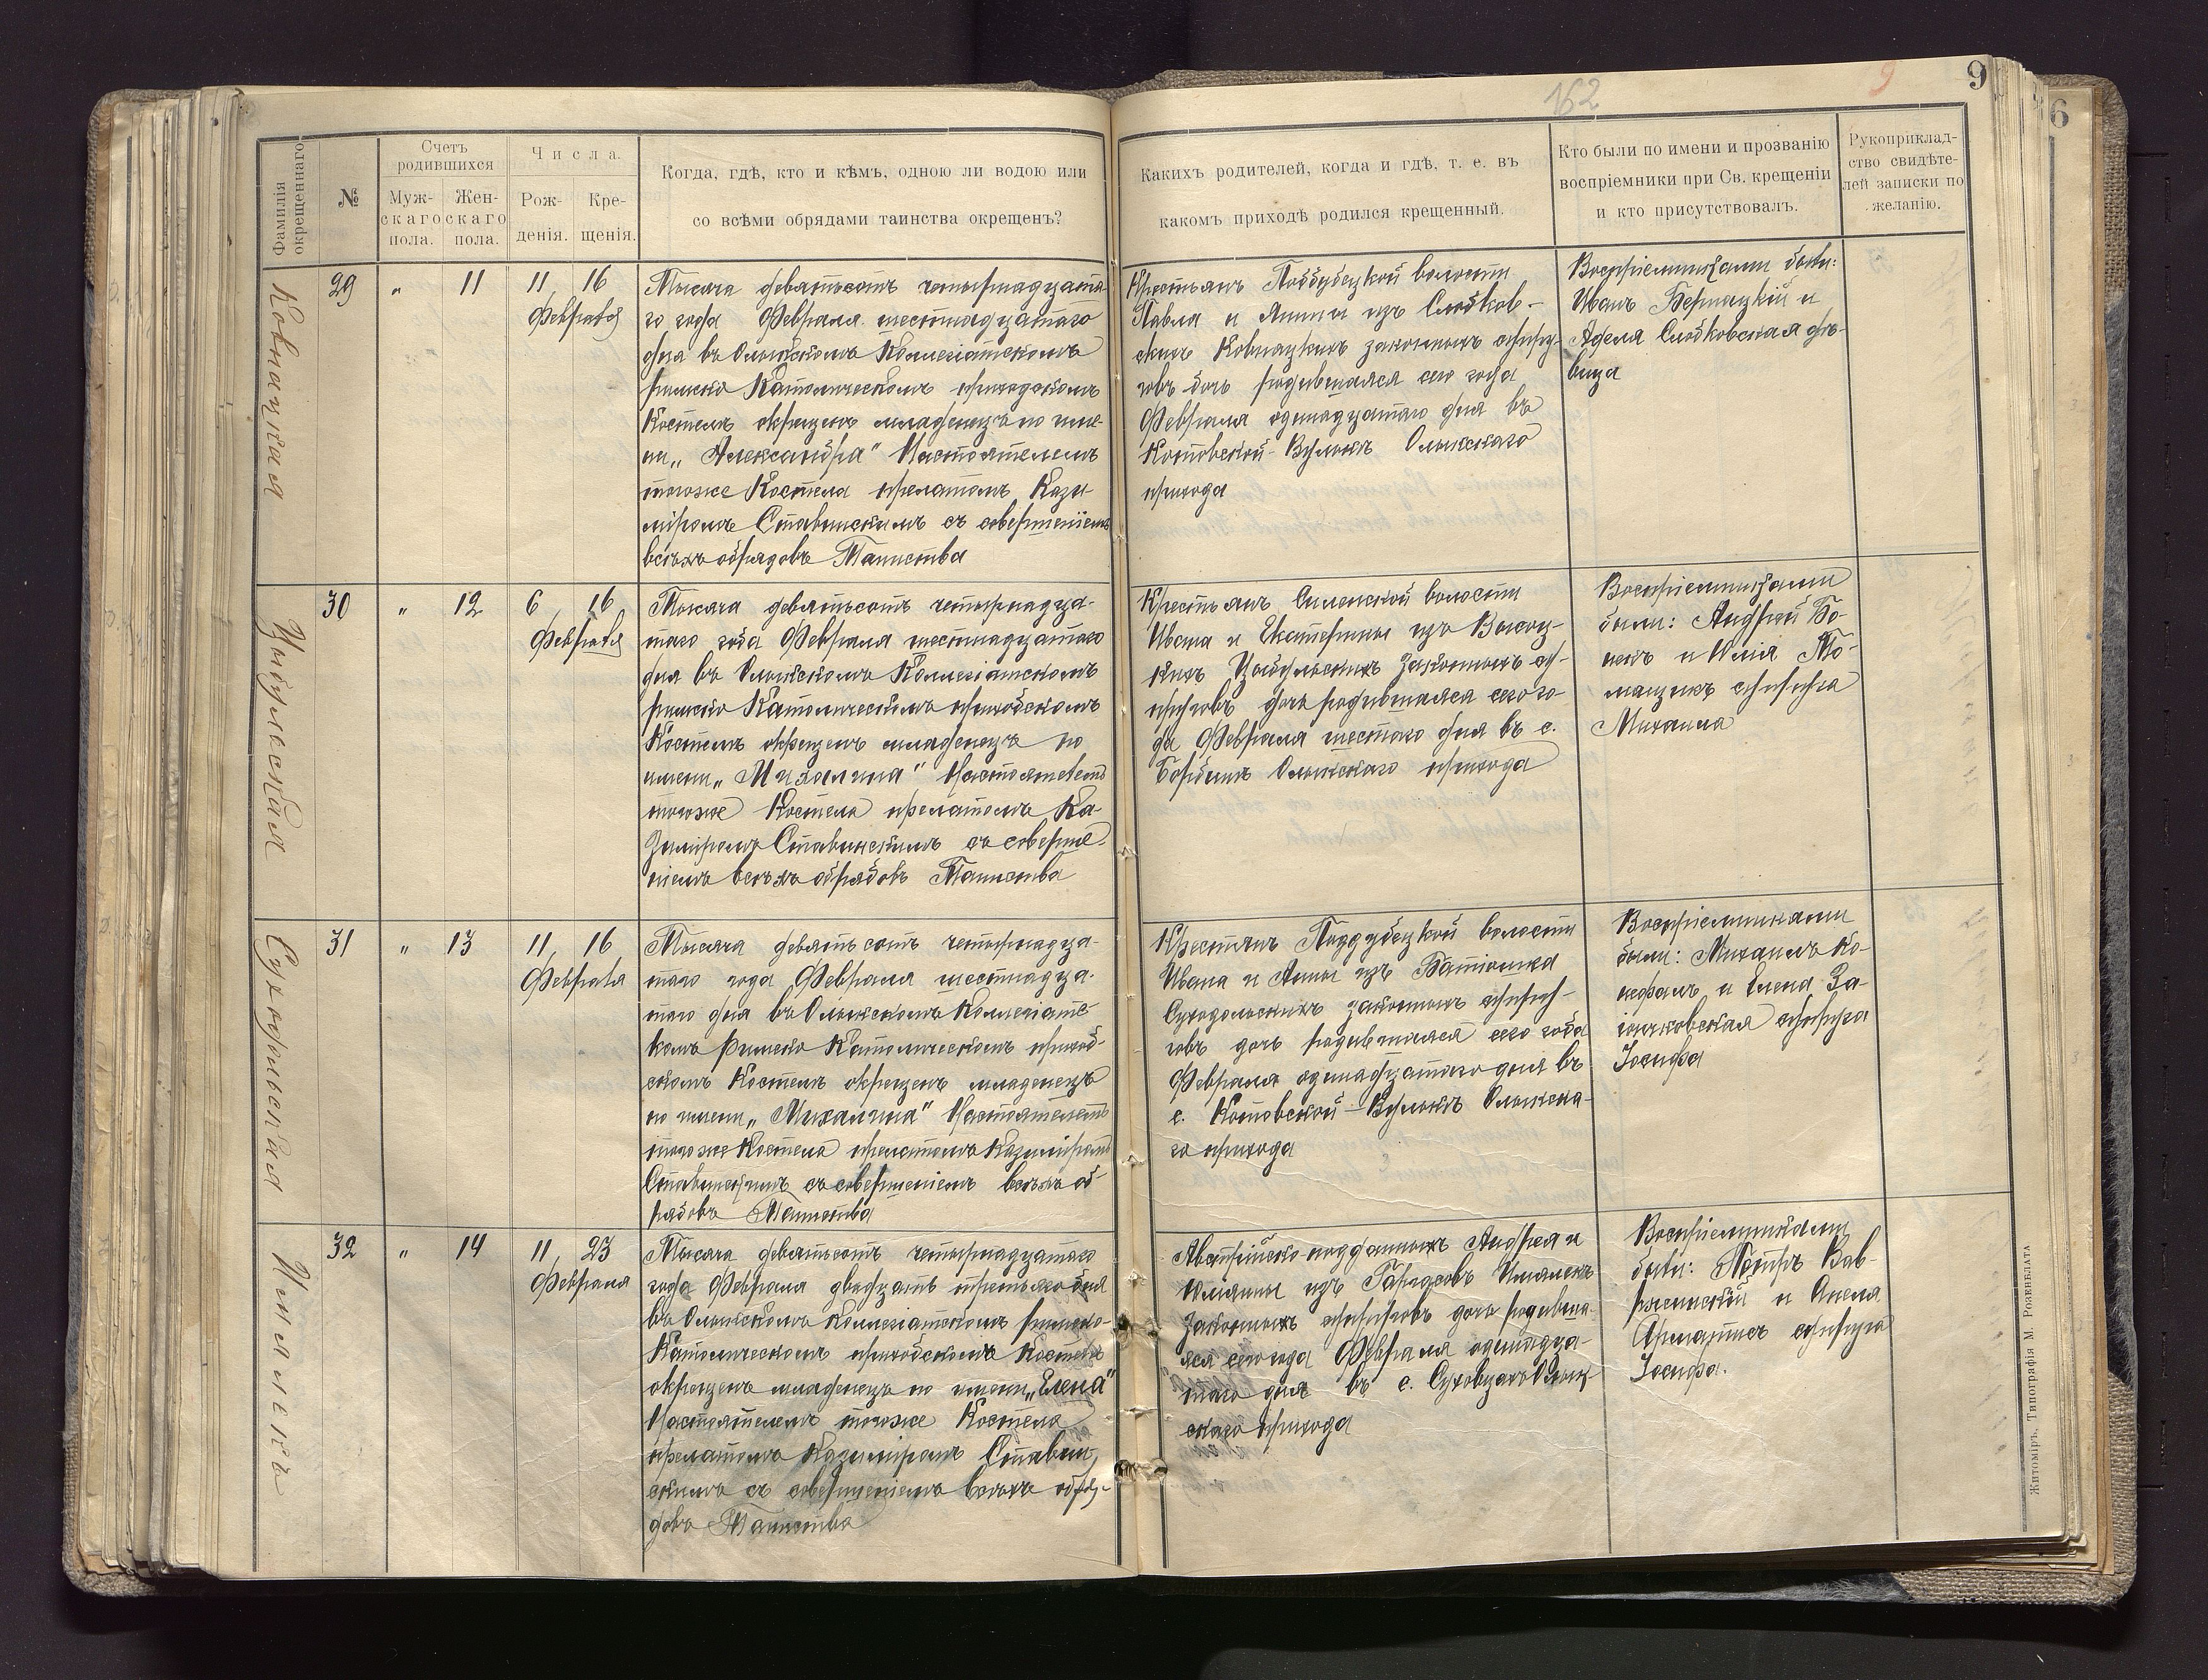 162
9
9
6
Фамилія окрещеннаго
№
Счетъ родившихся
Муж-
скаго
пола.
Жен-
скаго
пола.
Числа.
Рож-
денія.
Кре-
щенія.
Когда, гдѣ, кто и кѣмъ, одною ли водою или
со всѣми обрядами таинства окрещенъ?
Какихъ родителей, когда и гдѣ, т. е. въ
какомъ приходѣ родился крещенный.
Кто были по имени и прозванію
воспріемники при Св. крещеніи
и кто присутствовалъ.
Рукоприклад-
ство свидѣте-
лей записки по
желанію.
Ковнацкая
29 " 11 11 16
Февраля
Тысяча девятьсотъ четырнадцата
го года Февраля шестнадцатаго
дня въ Олыкскомъ Коллегіатскомъ
римско Католическомъ приходскомъ
Костелѣ окрещенъ младенецъ по име-
ни „Александра" Настоятелемъ
тогоже Костела прелатомъ Кази-
міромъ Ставинскимъ съ совершеніемъ
всѣхъ обрядовъ Таинства
Крестьянъ Поддубецкой волости
Павла и Анны изъ Слобков-
скихъ Ковнацкихъ законныхъ супру-
говъ дочь родившаяся сего года
Февраля одинадцатаго дня въ
Котовской-Вулькѣ Олыкскаго
прихода
Воспріемниками были:
Иванъ Бернацкій и
Аделя Слобковская дѣ-
вица
Цыбульская
30 " 12 6 16
Февраля
Тысяча девятьсотъ четырнадца-
таго года Февраля шестнадцатаго
дня въ Олыкскомъ Коллегіатскомъ
римско Католическомъ приходскомъ
Костелѣ окрещенъ младенецъ по
имени „Михалина" Настоятелемъ
тогоже Костела прелатомъ Ка-
зиміромъ Ставинскимъ съ соверше-
ніемъ всѣхъ обрядовъ Таинства
Крестьянъ Силенской волости
Ивана и Екатерины изъ Высоц-
кихъ Цыбульскихъ законныхъ су-
пруговъ дочь родившаяся сего го-
да Февраля шестого дня въ с.
Борбинѣ Олыкскаго прихода
Воспріемниками
были: Андрей Бо-
и Юлія То-
супруга
Михаила
Суходольская
31 " 13 11 16
Февраля
Тысяча девятьсотъ четырнадца-
таго года Февраля шестнадца-
таго дня въ Олыкскомъ Коллегіатс-
комъ Римско Католическомъ приход-
скомъ Костелѣ окрещенъ младенецъ
по имени „Михалина" Настоятелемъ
тогоже Костела прелатомъ Казиміромъ
Ставинскимъ съ совершеніемъ всѣхъ об-
рядовъ Таинства
Крестянъ Поддубецкой волости
Ивана и Анны изъ Батюшка
Суходольскихъ законныхъ супру-
говъ дочь родившаяся сего года
Февраля одинадцатаго дня въ
с. Котовской-Вулькѣ Олыкска-
го прихода
Воспріемниками
были: Михаилъ Ко-
и Елена За-
супруга
Іосифа
32 " 14 11 23
Февраля
Тысяча девятьсотъ четырнадцатаго
года Февраля двадцать третьяго дня
въ Олыкскомъ Коллегіатскомъ римско-
Католическомъ приходскомъ Костелѣ
окрещенъ младенецъ по имени „Елена"
Настоятелемъ тогоже Костела
прелатомъ Казиміромъ Ставин-
скимъ съ совершеніемъ всѣхъ обря-
довъ Таинства
Австрійско подданныхъ Андрея и
Юліанны изъ
законныхъ супруговъ дочь родивша-
яся сего года Февраля одинадца-
таго дня въ с. Суховцахъ Олык-
скаго прихода
Воспріемниками
были: Петръ Вав-
и Анеля
супруга
Іосифа.
Житоміръ, Типографія М. Розенблата